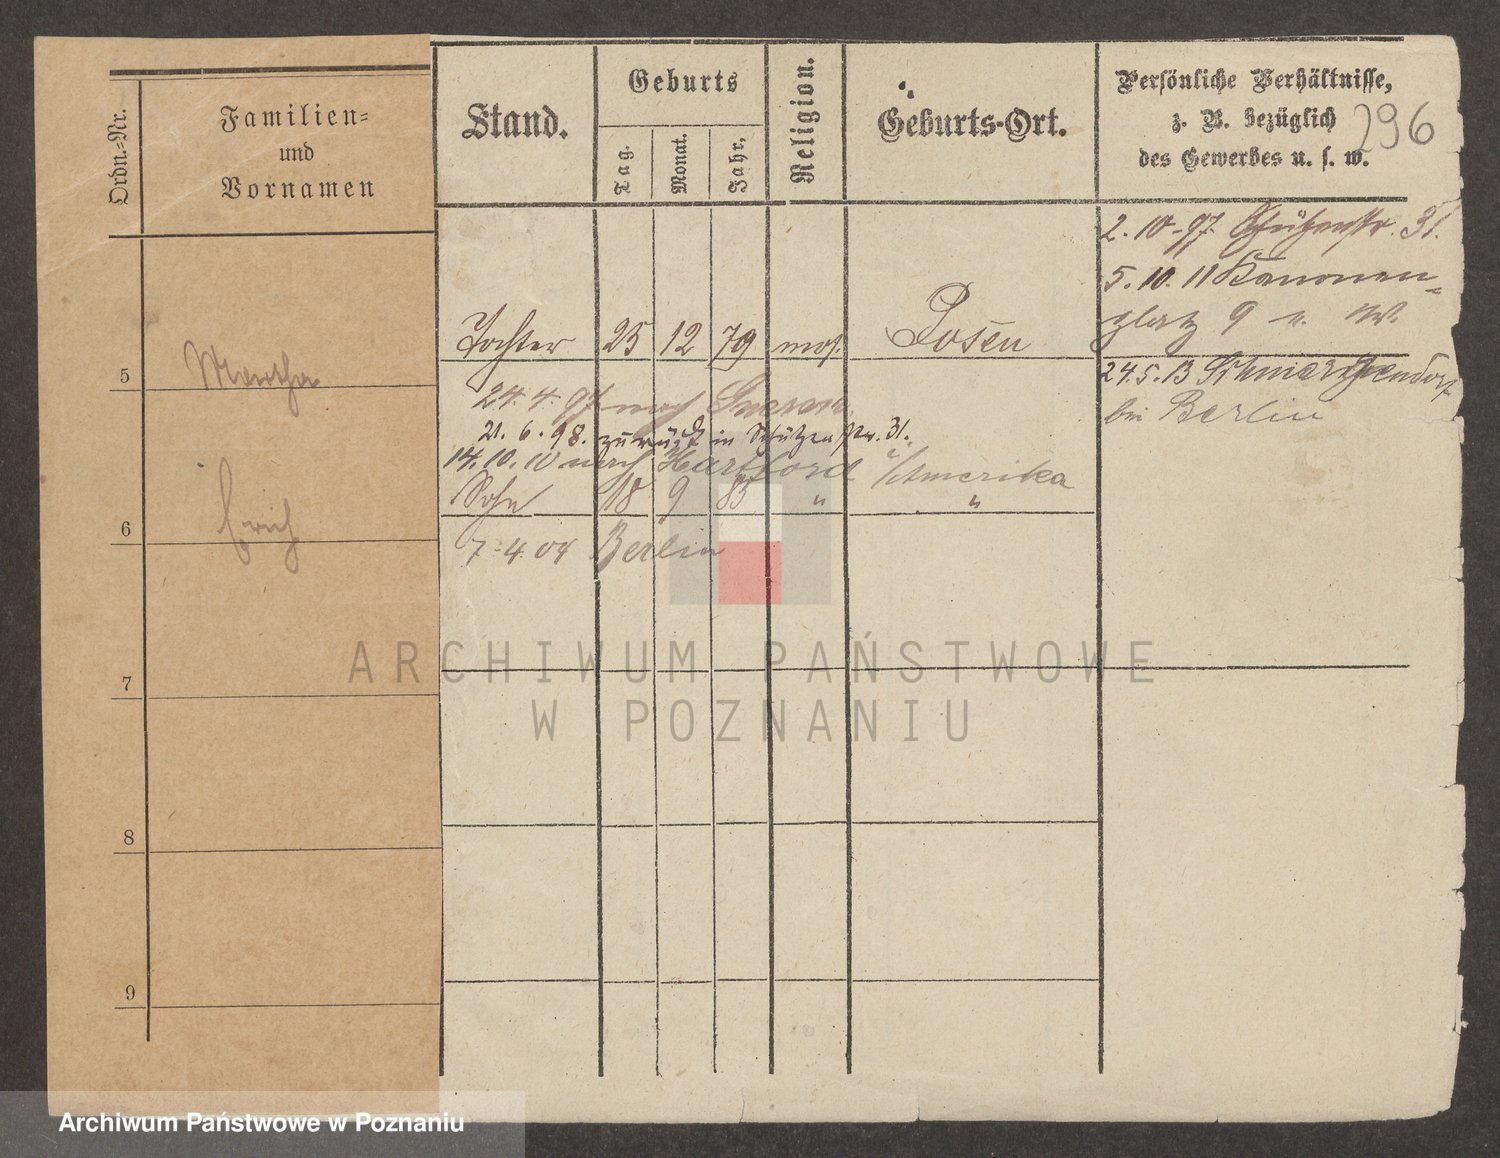 Ordn.-Nr.
Familien-
und
Vornamen
Stand.
Geburts
Tag.
Monat.
Jahr,
Religion.
Geburts-Ort.
Persönliche Verhältnisse,
z. B. bezüglich
des Gewerbes u. s. w.
296
2. 10. 97. Schützenstr. 31.
5. 10. 11 Kanonen-
platz 9 n. W.
5 Martha Tochter 25 12 79 mos. Posen
24. 5. 13 Schmargendorf
bei Berlin
24. 4. 97 nach
21. 6. 98. zurück in Schützenstr. 31.
14. 10. 10 nach Hartford i/Amerika
6 Erich Sohn 18 9 85 " "
7. 4. 04 Berlin
7
8
9
ARCHIWUM PAŃSTWOWE
W POZNANIU
Archiwum Państwowe w Poznaniu